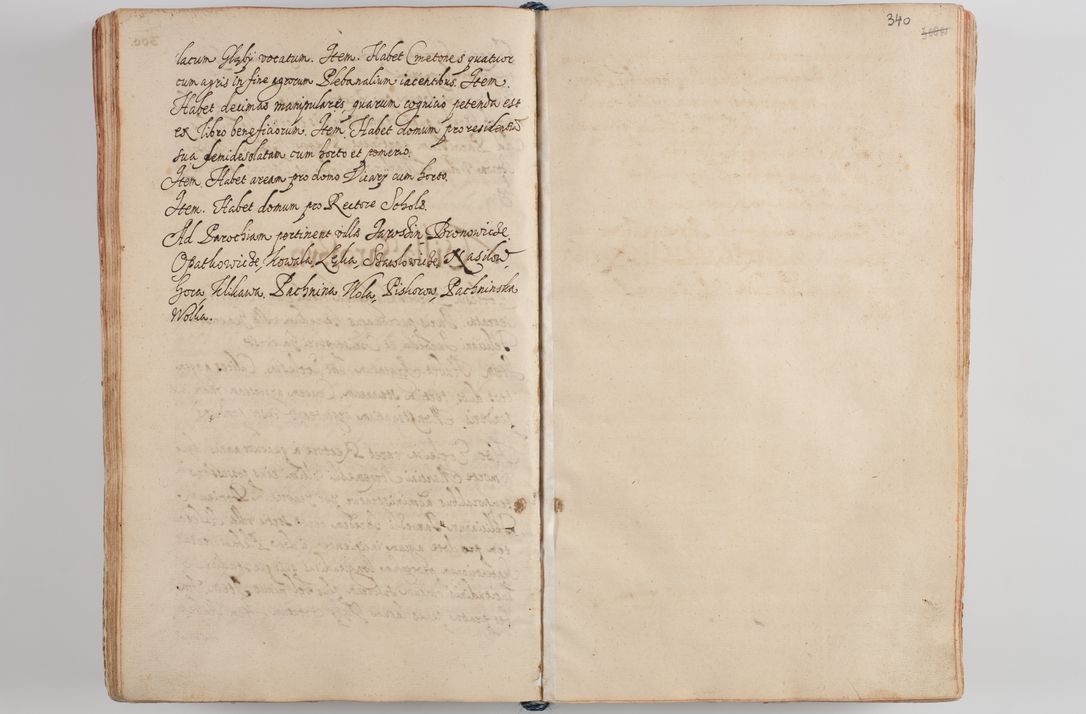 340
lacum Gląbij vocatum. Item. Habet Cmetones quatuor
cum agris in fine agrorum Plebanalium iacentibus. Item.
Habet decimas manipulares, quarum cognitio petenda est
ex libro beneficiorum. Item. Habet domum pro residentia
sua semidesolatam cum horto et pomerio.
Item. Habet aream pro domo Vicarij cum horto.
Item. Habet domum pro Rectore Scholæ.
Ad Parochiam pertinent villæ Jaroschin, Bronowicze
Opatkowicze, Kowala, Lęka, Sławowicze,
Gora, Klikawa, Pachnina Wola, Piskorow, Pachninska
Wolka.